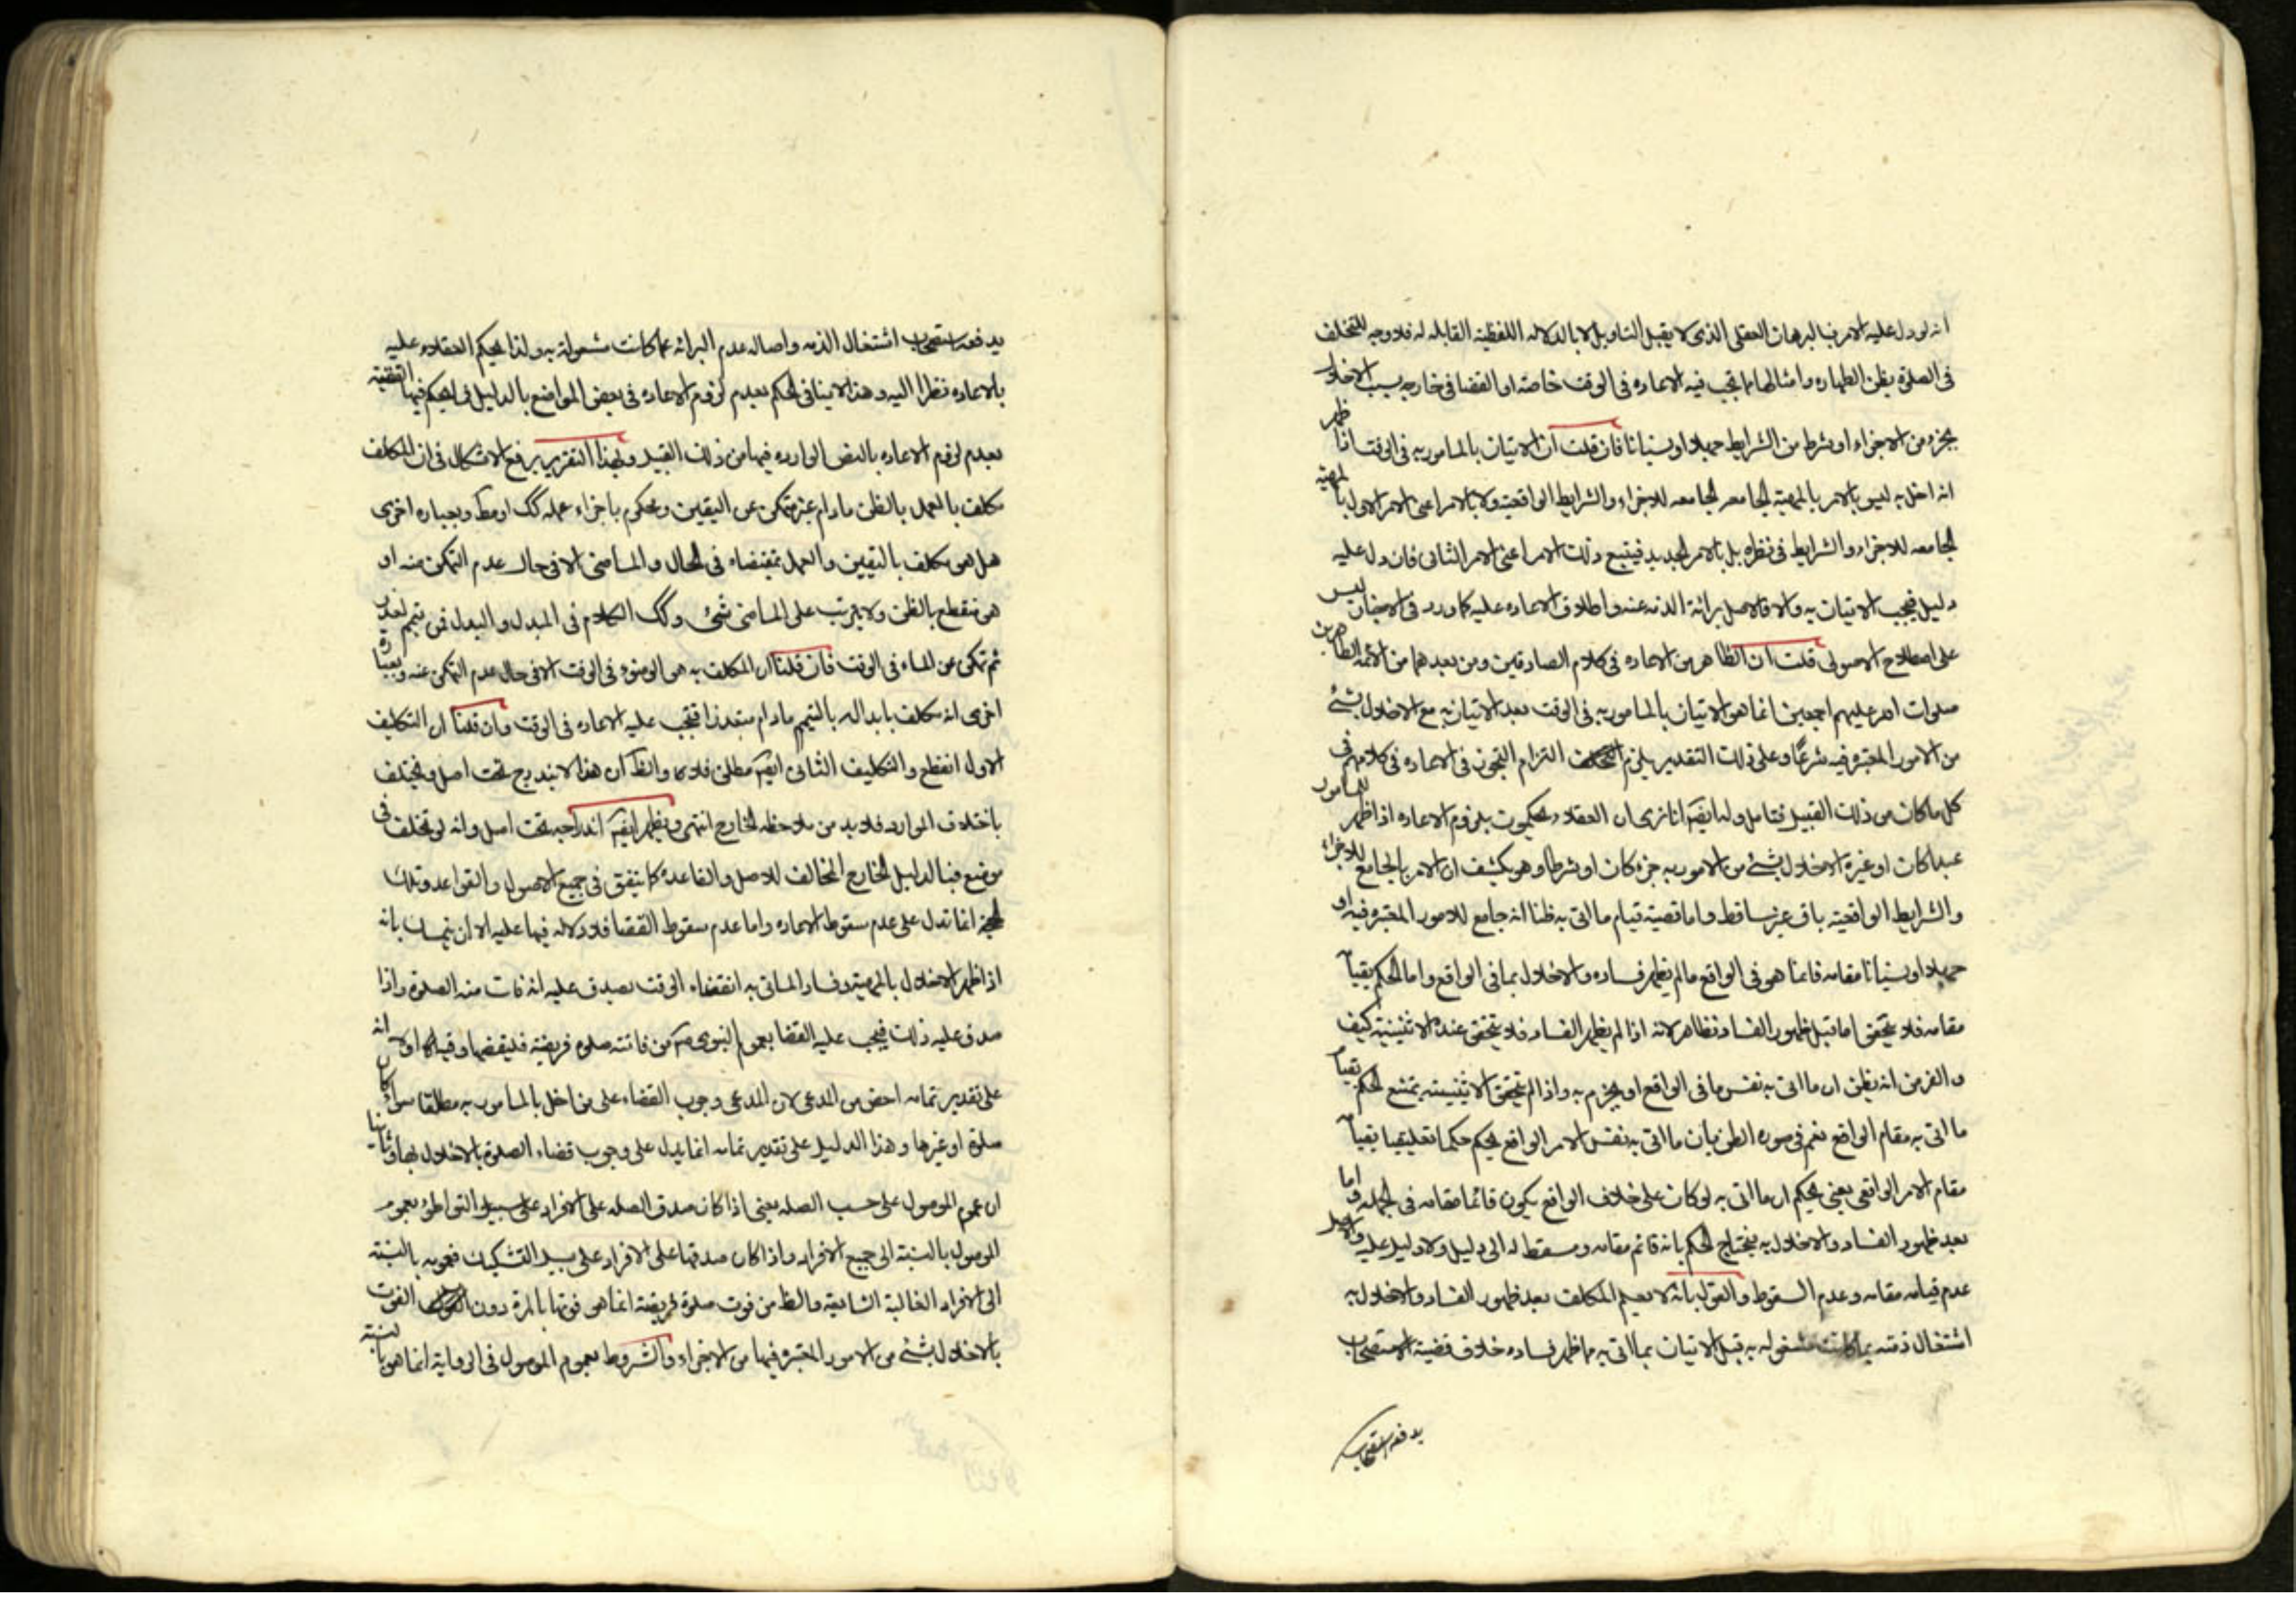 انه لو دل عليه الامر بالبرهان العقلى الذى لا يقبل التاويل لا بالدلاله اللفظية القابله له فلا وجه للتخلف
فى الصلوة بظن الطهاره وامثالها مما تجب فيه الاعاده فى الوقت خاصه او القضا فى خارجه بسبب الاخلال
بجزء من الاجزاء او شرط من الشرايط جهلا او نسيانا فان قلت ان الاتيان بالمامور به فى الوقت اذا ظهر
انه اخل به ليس بالامر بالمهية الجامعه للاجزاء والشرايط الواقعية ولا بالامر اعنى الامر الاول بالمهية
الجامعه للاجزاء والشرايط فى نظره بل بالامر الجديد فيتبع ذلك الامر اعنى الامر الثانى فان دل عليه
دليل فيجب الاتيان به والا فالاصل برائة الذمه عنه واطلاق الاعاده عليه كما ورد فى الاخبار ليس
على اصطلاح الاصولى قلت ان الظاهر من الاعاده فى كلام الصادقين ومن بعدهما من الائمه الطاهرين
صلوات الله عليهم اجمعين انما هو الاتيان بالمامور به فى الوقت بعد الاتيان به مع الاخلال بشئ
من الامور المعتبره فيه شرعا وعلى ذلك التقدير يلزم التزام التجوز فى الاعاده فى كلامهم فى
كل ما كان من ذلك القبيل فتامل ولنا ايضا انا نرى ان العقلاء يحكمون بلزوم الاعاده اذا ظهر للمامور
عبدا كان او غيره الاخلال بشئ من الامور به جزء كان او شرطا وهو يكشف ان الامر بالجامع للاجزاء
والشرايط الواقعية باق غير ساقط واما قضية قيام ما اتى به ظنا انه جامع للامور المعتبره فيه او
جهلا او نسيانا مقامه فانما هو فى الواقع ما لم يظهر فساده والاخلال بما فى الواقع واما الحكم بقيامه
مقامه فلا يتحقق اما قبل ظهور الفساد فظاهر لانه اذا لم يظهر الفساد فلا يتحقق عنده الاثنينية كيف
والفرض انه يظن ان ما اتى به نفس ما فى الواقع او يجزم به واذا لم يتحقق الاثنينية يمتنع الحكم بقيام
ما اتى به مقام الواقع نعم فى صوره الظن بان ما اتى به نفس الامر الواقع يحكم حكما تعليقيا بقيامه
مقام الامر الواقعى يعنى يحكم ان ما اتى به لو كان على خلاف الواقع يكون قائما مقامه فى الجمله واما
بعد ظهور الفساد والاخلال به فيحتاج الحكم بانه قائم مقامه ومسقط له الى دليل ولا دليل عليه والاصل
عدم قيامه مقامه وعدم السقوط والقول بانه لا يعلم المكلف بعد ظهور الفساد والاخلال به
اشتغال ذمته بما كانت مشغوله به قبل الاتيان بما اتى به مما ظهر فساده خلاف قضية الاستصحاب
يدفعه استصحاب
يدفعه استصحاب اشتغال الذمه واصاله عدم البرائه عما كانت مشغولة به ولذا يحكم العقلاء عليه
بالاعاده نظرا اليه وهذا لا ينافى الحكم بعدم لزوم الاعاده فى بعض المواضع بالدليل
بعدم لزوم الاعاده بالنص الوارده فيها من ذلك القبيل وبهذا التقرير يرفع الاشكال فى ان المكلف
مكلف بالعمل بالظن ما دام غير متمكن عن اليقين ومحكوم باجزاء عمله كك او مط وبعباره اخرى
هل هو مكلف باليقين والعمل بمقتضاه فى الحال والماضى الا فى حال عدم التمكن منه او
هو منقطع بالظن ولا يترتب على الماضى شئ وكك الكلام فى المبدل والبدل فمن تيمم لعذر
ثم تمكن عن الماء فى الوقت فان قلنا ان المكلف به هو الوضوء فى الوقت الا فى حال عدم التمكن عنه وبعبارة
اخرى انه مكلف بابداله بالتيمم ما دام متعذرا فتجب عليه الاعاده فى الوقت وان قلنا ان التكليف
الاول انقطع والتكليف الثانى ايضا مطلق فلا والظ ان هذا لا يندرج تحت اصل ويختلف
باختلاف الموارد فلا بد من ملاحظه الخارج انتهى ويظهر ايضا اندراجه تحت اصل وانه لو تخلف فى
موضع فبالدليل الخارج المخالف للاصل والقاعدة كما يتفق فى جميع الاصول والقواعد وتلك
الحجة انما تدل على عدم سقوط الاعاده واما عدم سقوط القضا فلا دلاله فيها عليه الا ان يتمسك بانه
اذا ظهر الاخلال بالمهية وفساد الماتى به انقضاء الوقت يصدق عليه انه فات منه الصلوة واذا
صدق عليه ذلك فيجب عليه القضا بعموم النبوى من فاتته صلوة فريضة فليقضها وفيه اولا انه
على تقدير تمامه اخص من المدعى لان المدعى وجوب القضاء على من اخل بالمامور به مطلقا سواء كان
صلوة او غيرها وهذا الدليل على تقدير تمامه انما يدل على وجوب قضاء الصلوة بالاخلال بها وثانيا
ان عموم الموصول على حسب الصله يعنى اذا كان صدق الصله على الافراد على سبيل التواطئ فعموم
الموصول بالنسبة الى جميع الافراد واذا كان صدقها على الافراد على سبيل التشكيك فعمومه بالنسبة
الى الافراد الغالبة الشايعة والظ من فوت صلوة فريضة انما هو فوتها بالمرة دون الفوت
بالاخلال بشئ من الامور المعتبره فيها من الاجزاء والشروط فعموم الموصول فى الرواية انما هو بالنسبة